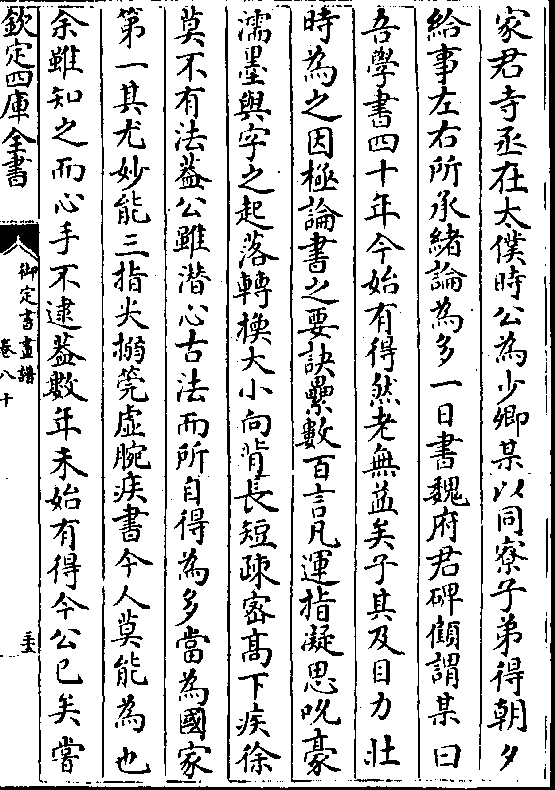 家君寺丞在大僕時公為少卿某以同寮子弟得朝夕
給事左右所承緒論為多一日書魏府君碑顧謂某曰
吾學書四十年今始有得然老無益矣子其及目力壯
時為之因極論書之要訣纍數百言凡運指凝思吮豪
濡墨與字之起落轉換大小向背長短疎密高下疾徐
莫不有法葢公雖潛心古法而所自得為多當為國家
第一其尤妙能三指尖搦筦虛腕疾書今人莫能為也
余雖知之而心手不逮葢數年未始有得今公已矣嘗
欽定四庫全書
御定書畫譜
卷八十